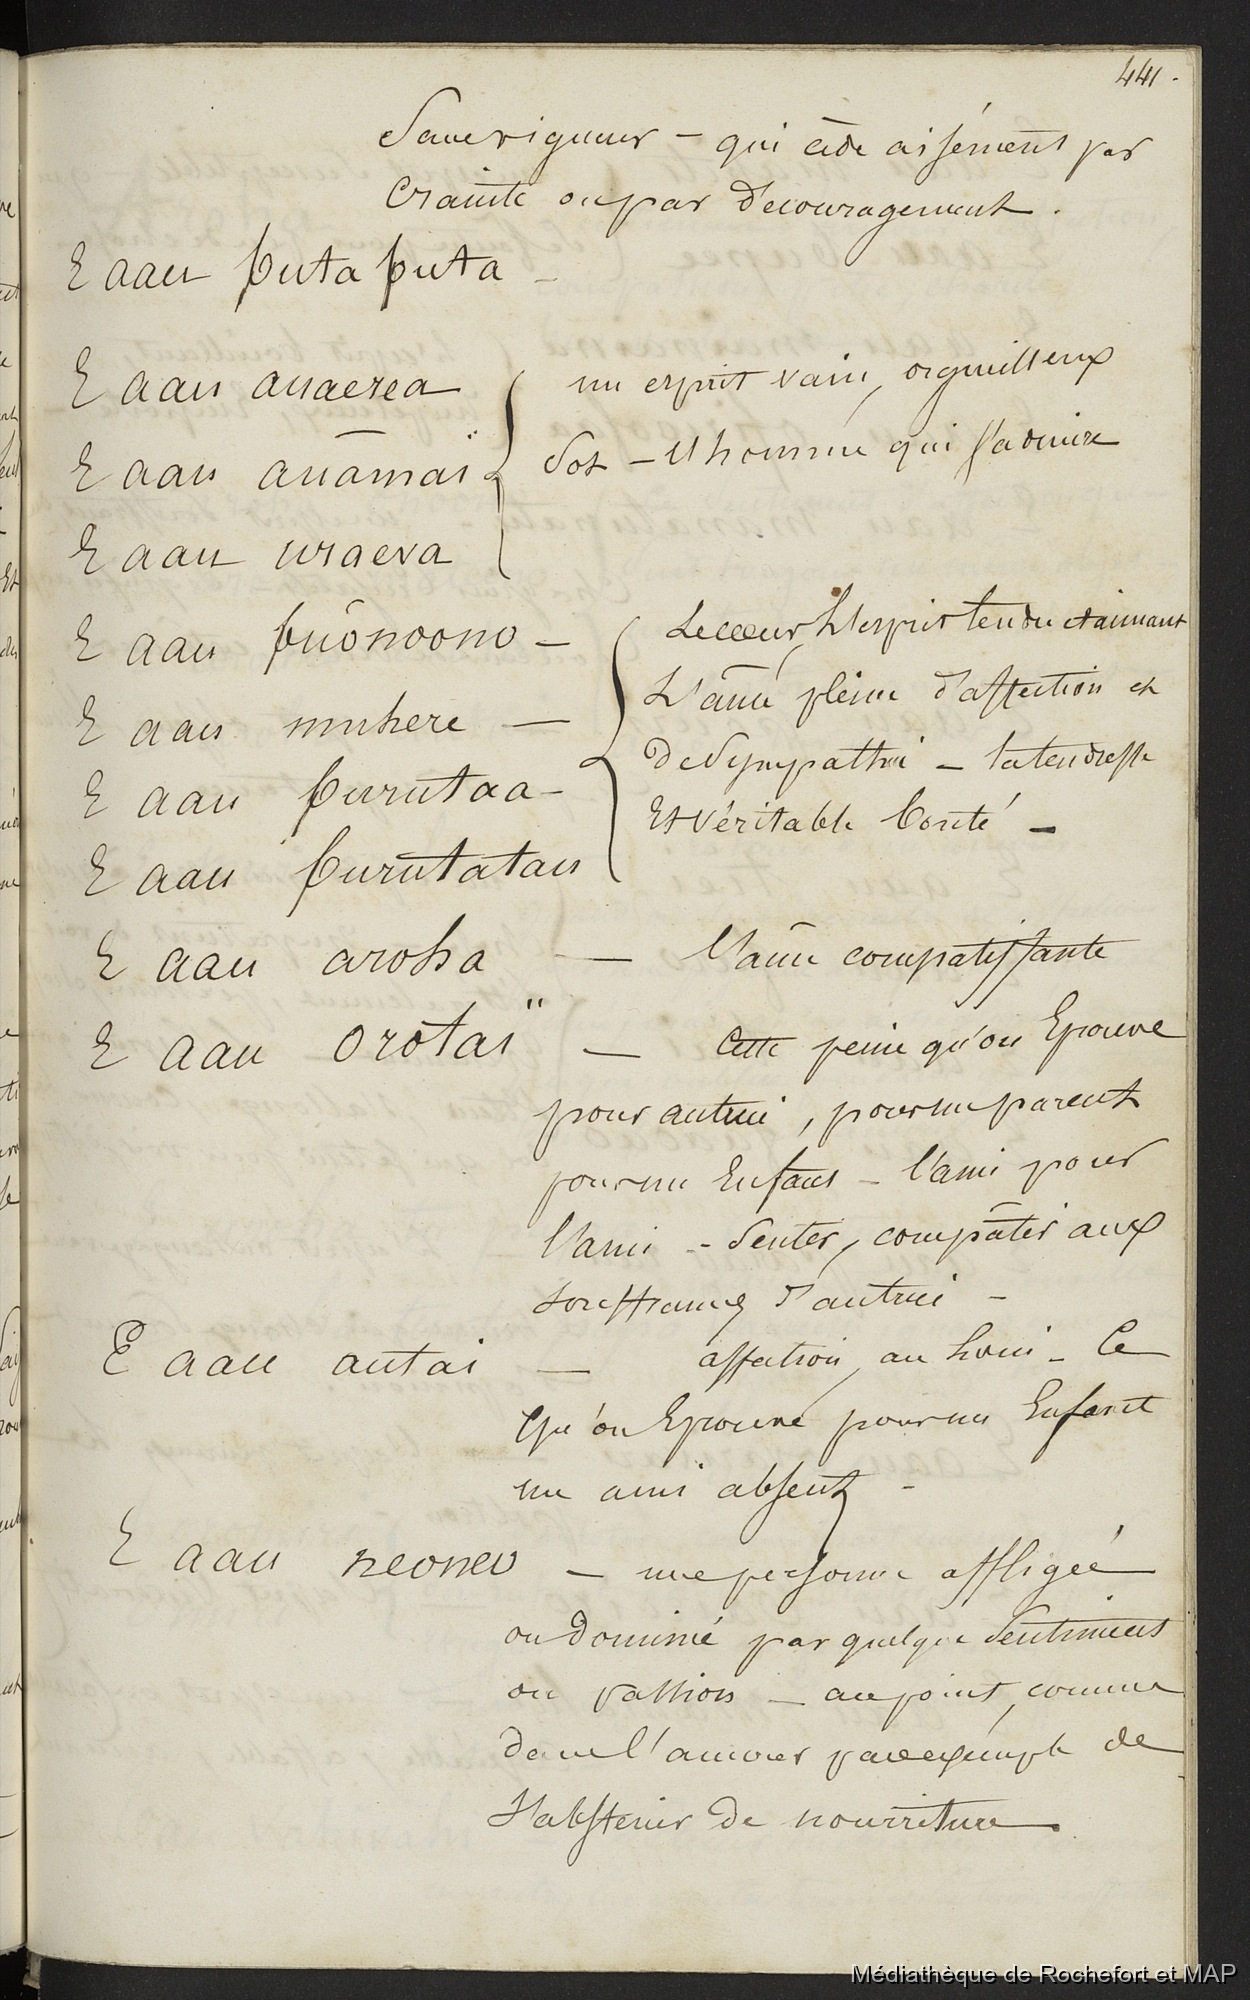 441.
Sans vigueur - qui cède aisément par
Crainte ou par découragement.
E aau putaputa -
E aau auaerea
un esprit vain, orgueilleux
E aau auāmaï
Sot - l'homme qui s'admire
E aau uraeva
E aau puōnoono -
Le cœur, l'esprit tendre et aimant
E aau muhere -
L'âme pleine d'affection et
De Sympathie - la tendresse
E aau purutaa -
Et véritable bonté -
E aau purutatau
E aau aroha - l'âme compatissante
E aau orōtaï - Cette peine qu'on Eprouve
pour autrui, pour un parent
pour un Enfant - l'ami pour
l'ami - Sentir, compâtir aux
Souffrances d'autrui -
E aau autai - affection, au loin - Ce
Qu'on Eprouve pour un Enfant
un ami absent -
E aau neoneo - une personne affligée
ou Dominé par quelque Sentiment
ou passion - au point, comme
dans l'amour par exemple de
S'abstenir de nourriture.
Médiathèque de Rochefort et MAP